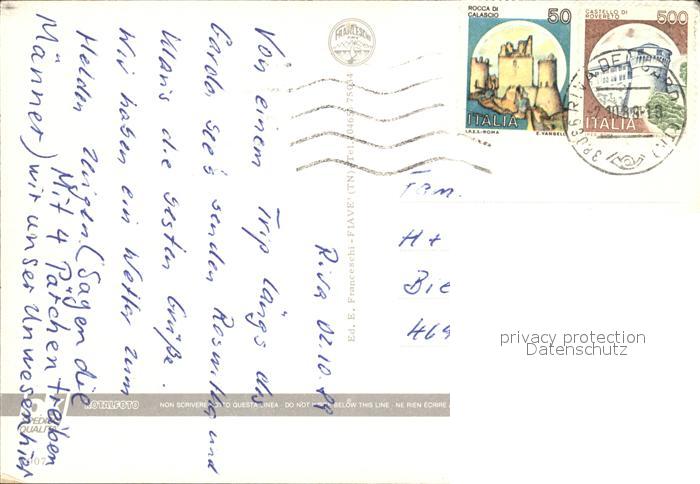 Riva 02.10.89
Von einem Trip längs des
Garda See's senden Roswitha und
Klaus die besten Grüße.
Wir haben ein Wetter zum
Helden zeugen. (Sagen die
Männer) Mit 4 Pärchen treiben
wir unser Unwesen hier
Fam.
H +
Bie
469
ROCCA DI
CALASCIO
50
ITALIA
I.P.Z.S.-ROMA
E. VANGELLI
CASTELLO DI
ROVERETO
500
ITALIA
38066 RIVA DEL GARDA (TN)
FRANCESCHI
Ed. E. Franceschi - FIAVE' (TN) Tel.
ROTALFOTO
NON SCRIVERE SOTTO QUESTA LINEA - DO NOT WRITE BELOW THIS LINE - NE RIEN ÉCRIRE
privacy protection
Datenschutz